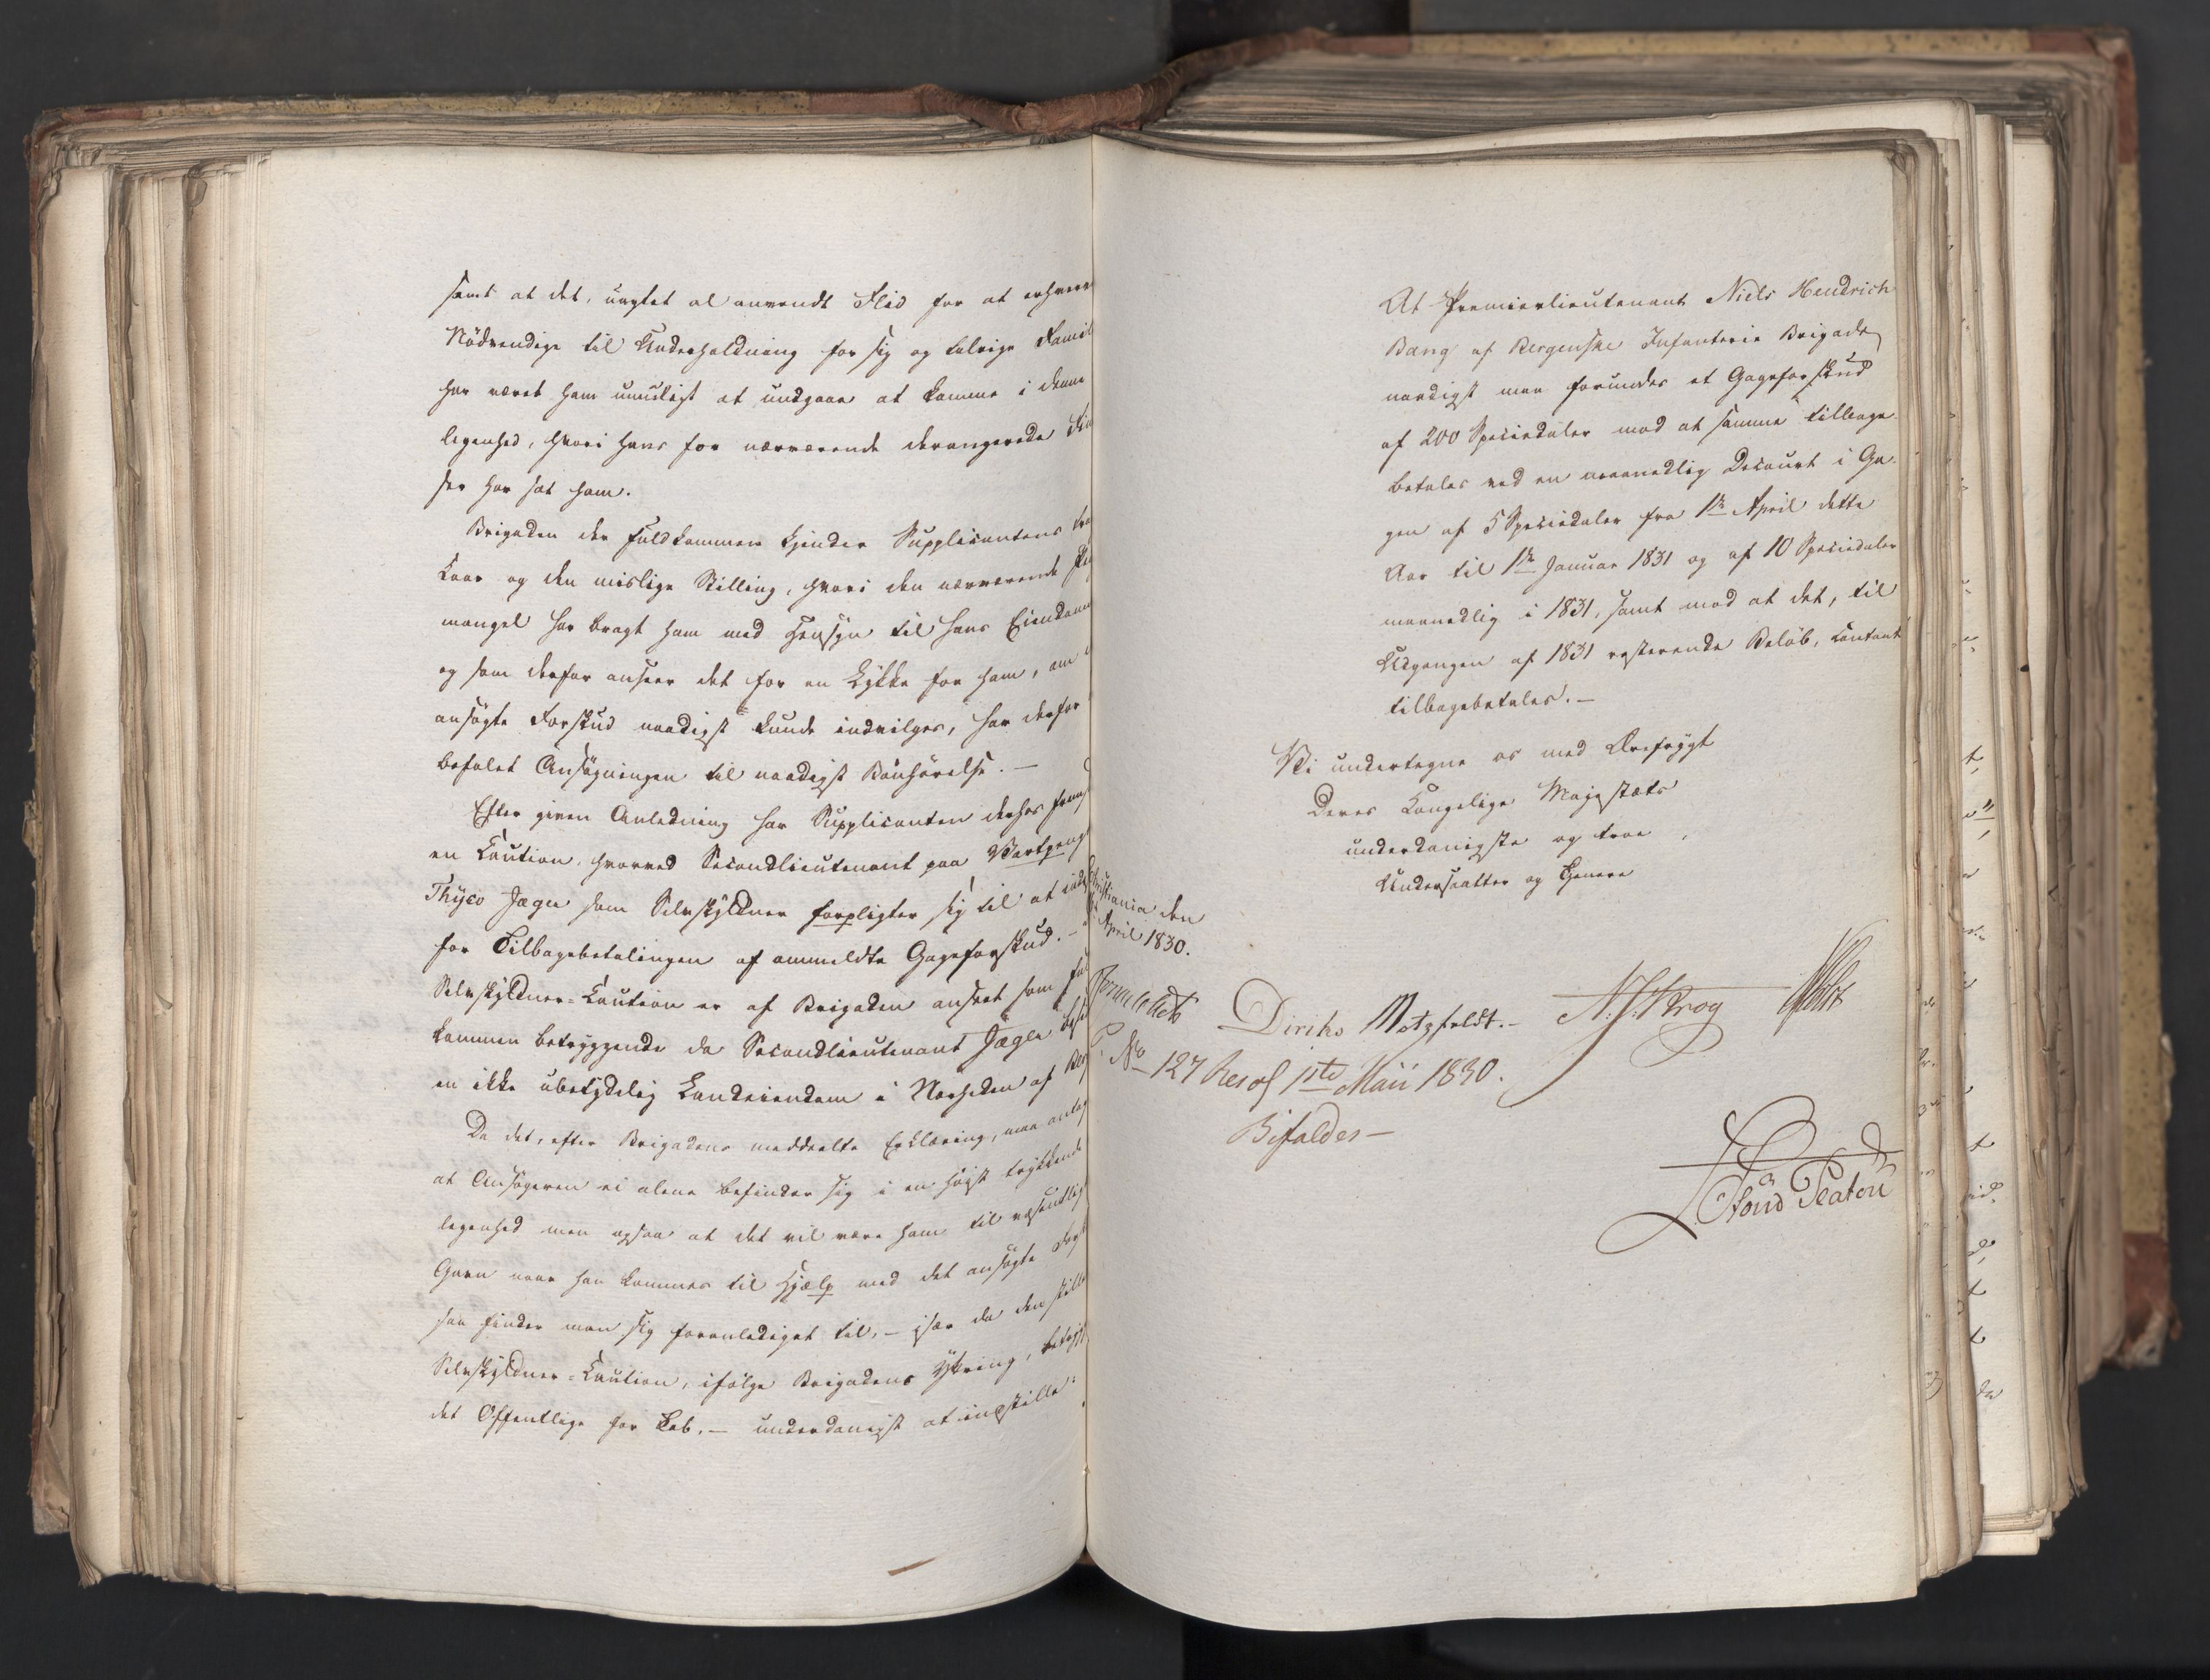 samt at det, uagtet al anvendt Flid for at erhverve
Nödvendige til Underholdning for sig og talrige Famil
har været ham umuligt at undgaae at komme i denne
legenhed, hvori hans for nærværende derangerede Fin
ser har sat ham.
Brigaden der fuldkommen kjender Supplicantens
Kaar og den mislige Stilling, hvori den nærværende
mangel har bragt ham med Hensyn til hans Eiendom
og som derfor anseer det for en Lykke for ham, om
ansøgte Forskud naadigst kunde indvilges, har derfor
befalet Ansøgningen til naadigst Bönhörelse. —
Efter given Anledning har Supplicanten derhos
en Caution, hvorved Secondlieutenant paa Vartpenge
Thyco Jæger som Selvskyldner forpligter sig til at
for Tilbagebetalingen af anmeldte Gageforskud. —
Selvskyldner-Caution er af Brigaden anseet som
kommen betryggende da Secondlieutenant Jæger
en ikke ubetydelig Landeiendom i Nærheden af
Da det, efter Brigadens meddeelte Erklæring, maa
at Ansøgeren ei alene befinder sig i en høist trykkende
legenhed men ogsaa at det vil være ham til væsentlig
Gavn naar han kommes til Hjælp med det ansøgte
saa finder man sig foranlediget til, — især da den
Selvskyldner-Caution, ifølge Brigadens Yttring,
det Offentlige for Tab, — underdanigst at indstille:
At Premierlieutenant Niels Hendrich
Bang af Bergenske Infanterie Brigade
naadigst maa forundes et Gageforskud
af 200 Speciedaler mod at samme tilbage
betales ved en maanedlig Decourt i Ga-
gen af 5 Speciedaler fra 1ste April dette
Aar til 1ste Januar 1831 og af 10 Speciedaler
maanedlig i 1831, samt mod at det, til
Udgangen af 1831 resterende Beløb, contant
tilbagebetales. —
Vi undertegne os med Ærefrygt
Deres Kongelige Majestæts
underdanigste og troe
Undersaatter og Tjenere
Christiania den
April 1830.
Diriks Motzfeldt. — N. J. Krog Holst
No 127 Resol 1ste Maii 1830.
Bifaldes —